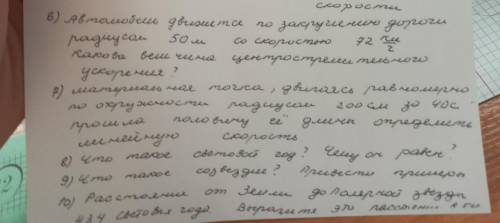 скорости
6) Автомобиль движется по закруглению дороги
радиусом 50 м со скоростью 72 км/ч
Какова величина центростремительного
ускорения?
7) материальная точка, двигаясь равномерно
по окружности радиусом 200 см за 40 с
прошла половину её длины определить
линейную скорость.
8) Что такое световой год? Чему он равен?
9) Что такое созвездие? Привести примеры
10) Расстояние от Земли до Полярной звезды
световых года. Выразите это расстояние в